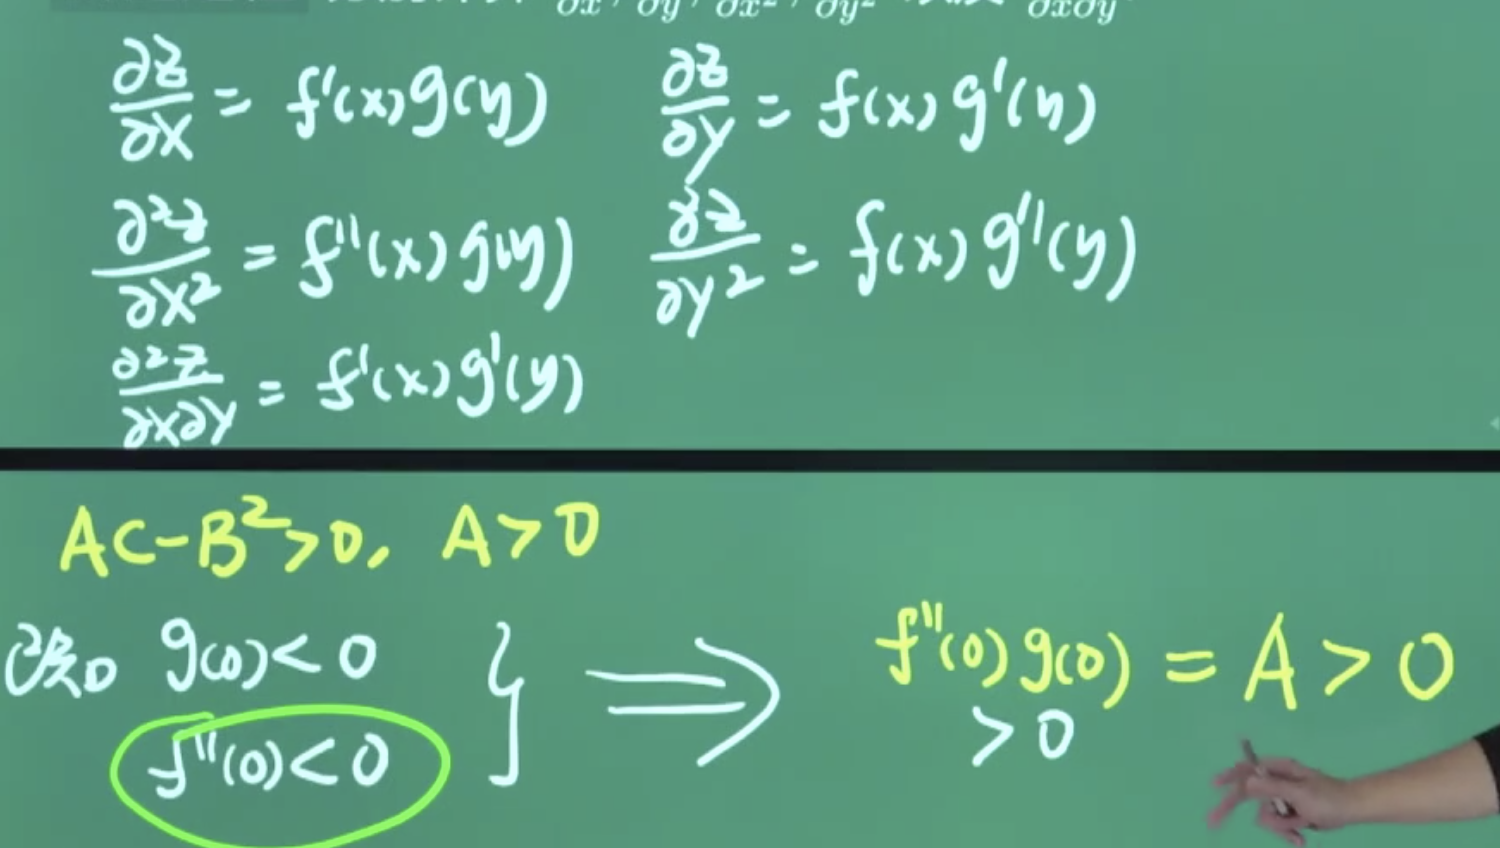 ∂x, ∂y, ∂x², ∂y² ∂x∂y
∂z/∂x = f'(x)g(y) ∂z/∂y = f(x)g'(y)
∂²z/∂x² = f''(x)g(y) ∂²z/∂y² = f(x)g''(y)
∂²z/∂x∂y = f'(x)g'(y)
AC-B²>0, A>0
已知 g(0)<0
f''(0)<0 } ⇒ f''(0)g(0) = A > 0
>0